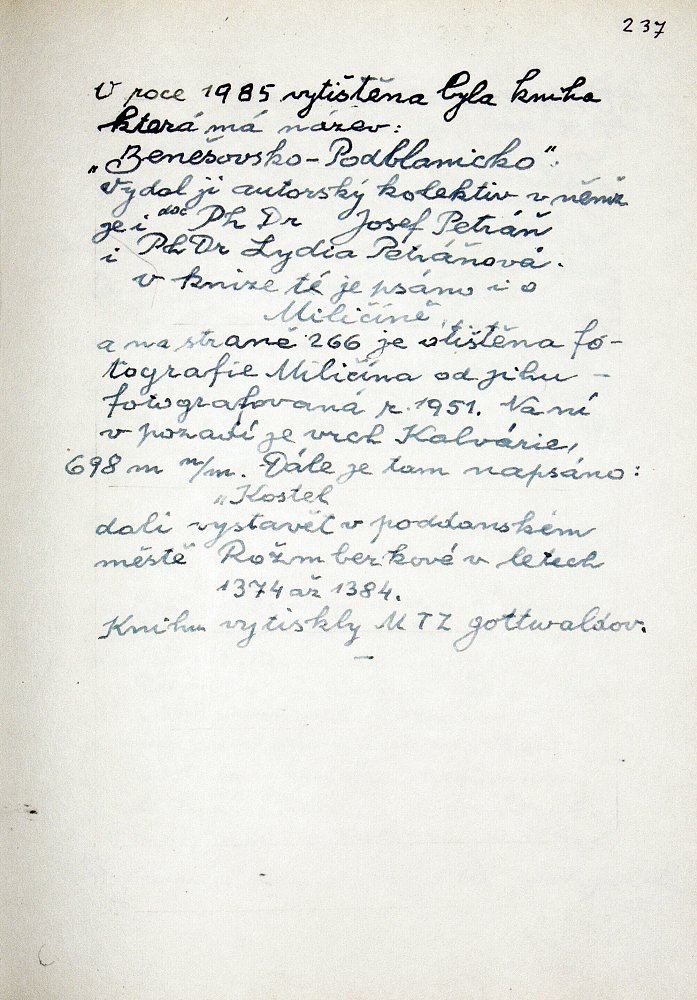 237
V roce 1985 vytištěna byla kniha
která má název:
„Benešovsko-Podblanicko".
Vydal ji autorský kolektiv v němž
je i doc Ph Dr Josef Petráň
i Ph Dr Lydia Petráňová.
v knize té je psáno i o
Miličíně,
a na straně 266 je otištěna fo-
tografie Miličína od jihu –
fotografovaná r. 1951. Na ní
v pozadí je vrch Kalvárie,
698 m n/m. Dále je tam napsáno:
„Kostel
dali vystavět v poddanském
městě Rožmberkové v letech
1374 až 1384.
Knihu vytiskly M T Z gottwaldov.
–